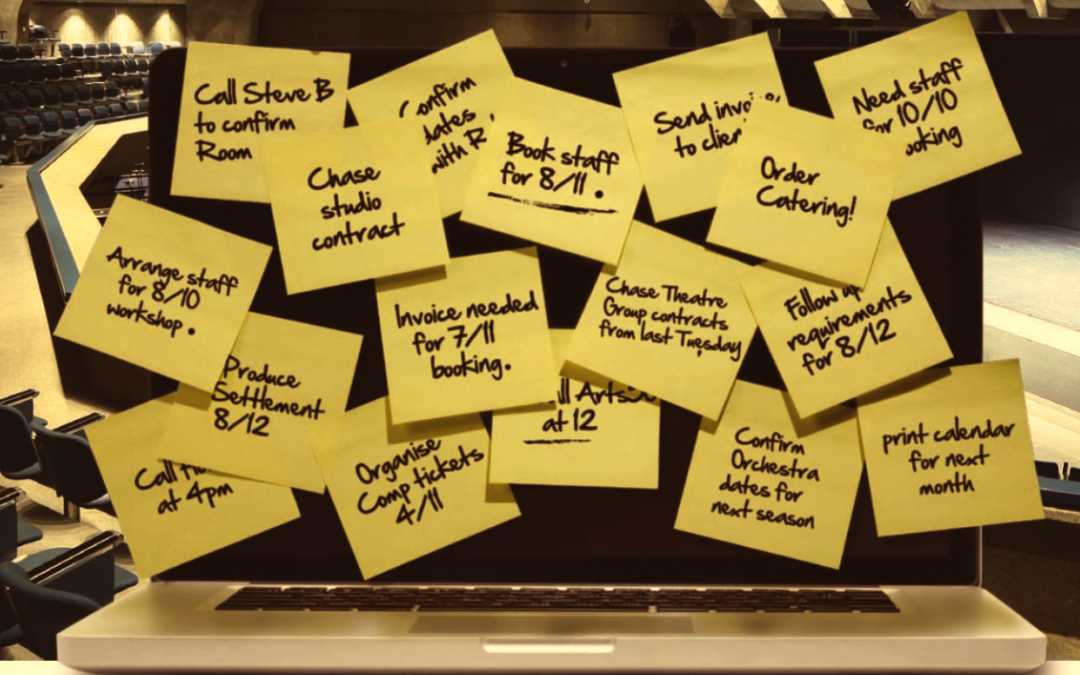 Call Steve B
to confirm
Room
Confirm
dates
with R
Chase
studio
contract
Book staff
for 8/11.
Send invoice
to client
Need staff
for 10/10
booking
Order
Catering!
Arrange staff
for 8/10
workshop.
Invoice needed
for 7/11
booking.
Chase Theatre
Group contracts
from last Tuesday
Follow up
requirements
for 8/12
Produce
Settlement
8/12
Call
at 4pm
Organise
Comp tickets
4/11
at 12
Confirm
Orchestra
dates for
next season
print calendar
for next
month